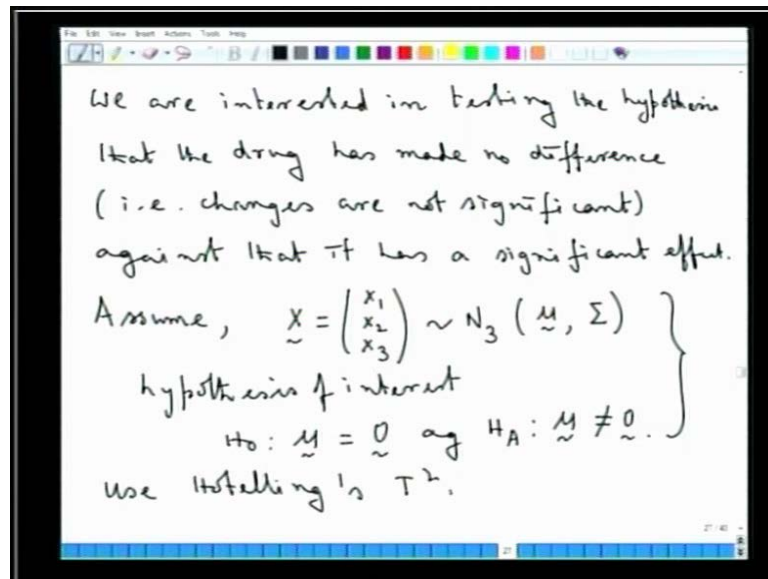 File Edit View Insert Actions Tools Help
We are interested in testing the hypothesis
that the drug has made no difference
(i.e. changes are not significant)
against that it has a significant effect.
Assume, X̰ = (x₁ x₂ x₃) ~ N₃ (μ̰, Σ)
hypothesis of interest
H₀: μ̰ = 0̰ ag H_A: μ̰ ≠ 0̰.
use Hotelling's T².
27